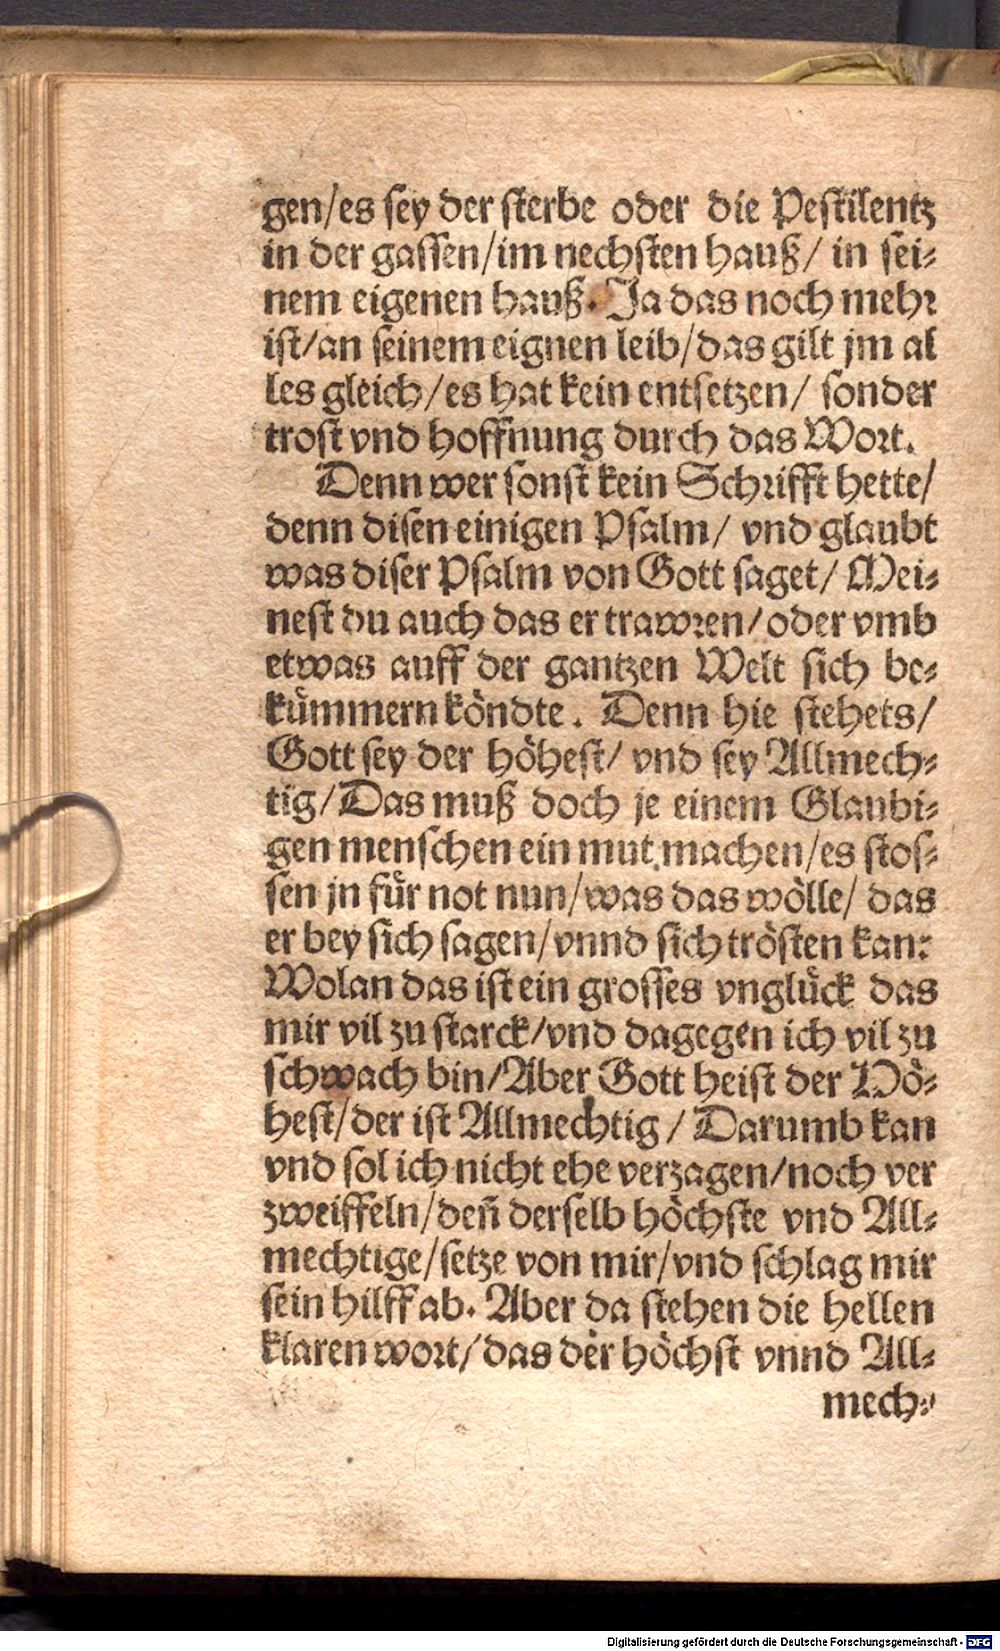 gen/es sey der sterbe oder die Pestilentz
in der gassen/im nechsten hauß/ in sei⸗
nem eigenen hauß. Ja das noch mehr
ist/an seinem eignen leib/das gilt jm al
les gleich/es hat kein entsetzen/ sonder
trost vnd hoffnung durch das Wort.
Denn wer sonst kein Schrifft hette/
denn disen einigen Psalm/ vnd glaubt
was diser Psalm von Gott saget/ Mei⸗
nest du auch das er trawren/oder vmb
etwas auff der gantzen Welt sich be⸗
kümmern köndte. Denn hie stehets/
Gott sey der höhest/ vnd sey Allmech⸗
tig/Das muß doch je einem Glaubi⸗
gen menschen ein mut machen/es stos⸗
sen jn für not nun/was das wölle/ das
er bey sich sagen/vnnd sich trösten kan:
Wolan das ist ein grosses vnglück das
mir vil zu starck/vnd dagegen ich vil zu
schwach bin/Aber Gott heist der Hö⸗
hest/der ist Allmechtig/ Darumb kan
vnd sol ich nicht ehe verzagen/noch ver
zweiffeln/deñ derselb höchste vnd All⸗
mechtige/setze von mir/vnd schlag mir
sein hilff ab. Aber da stehen die hellen
klaren wort/das der höchst vnnd All⸗
mech⸗
Digitalisierung gefördert durch die Deutsche Forschungsgemeinschaft - DFG